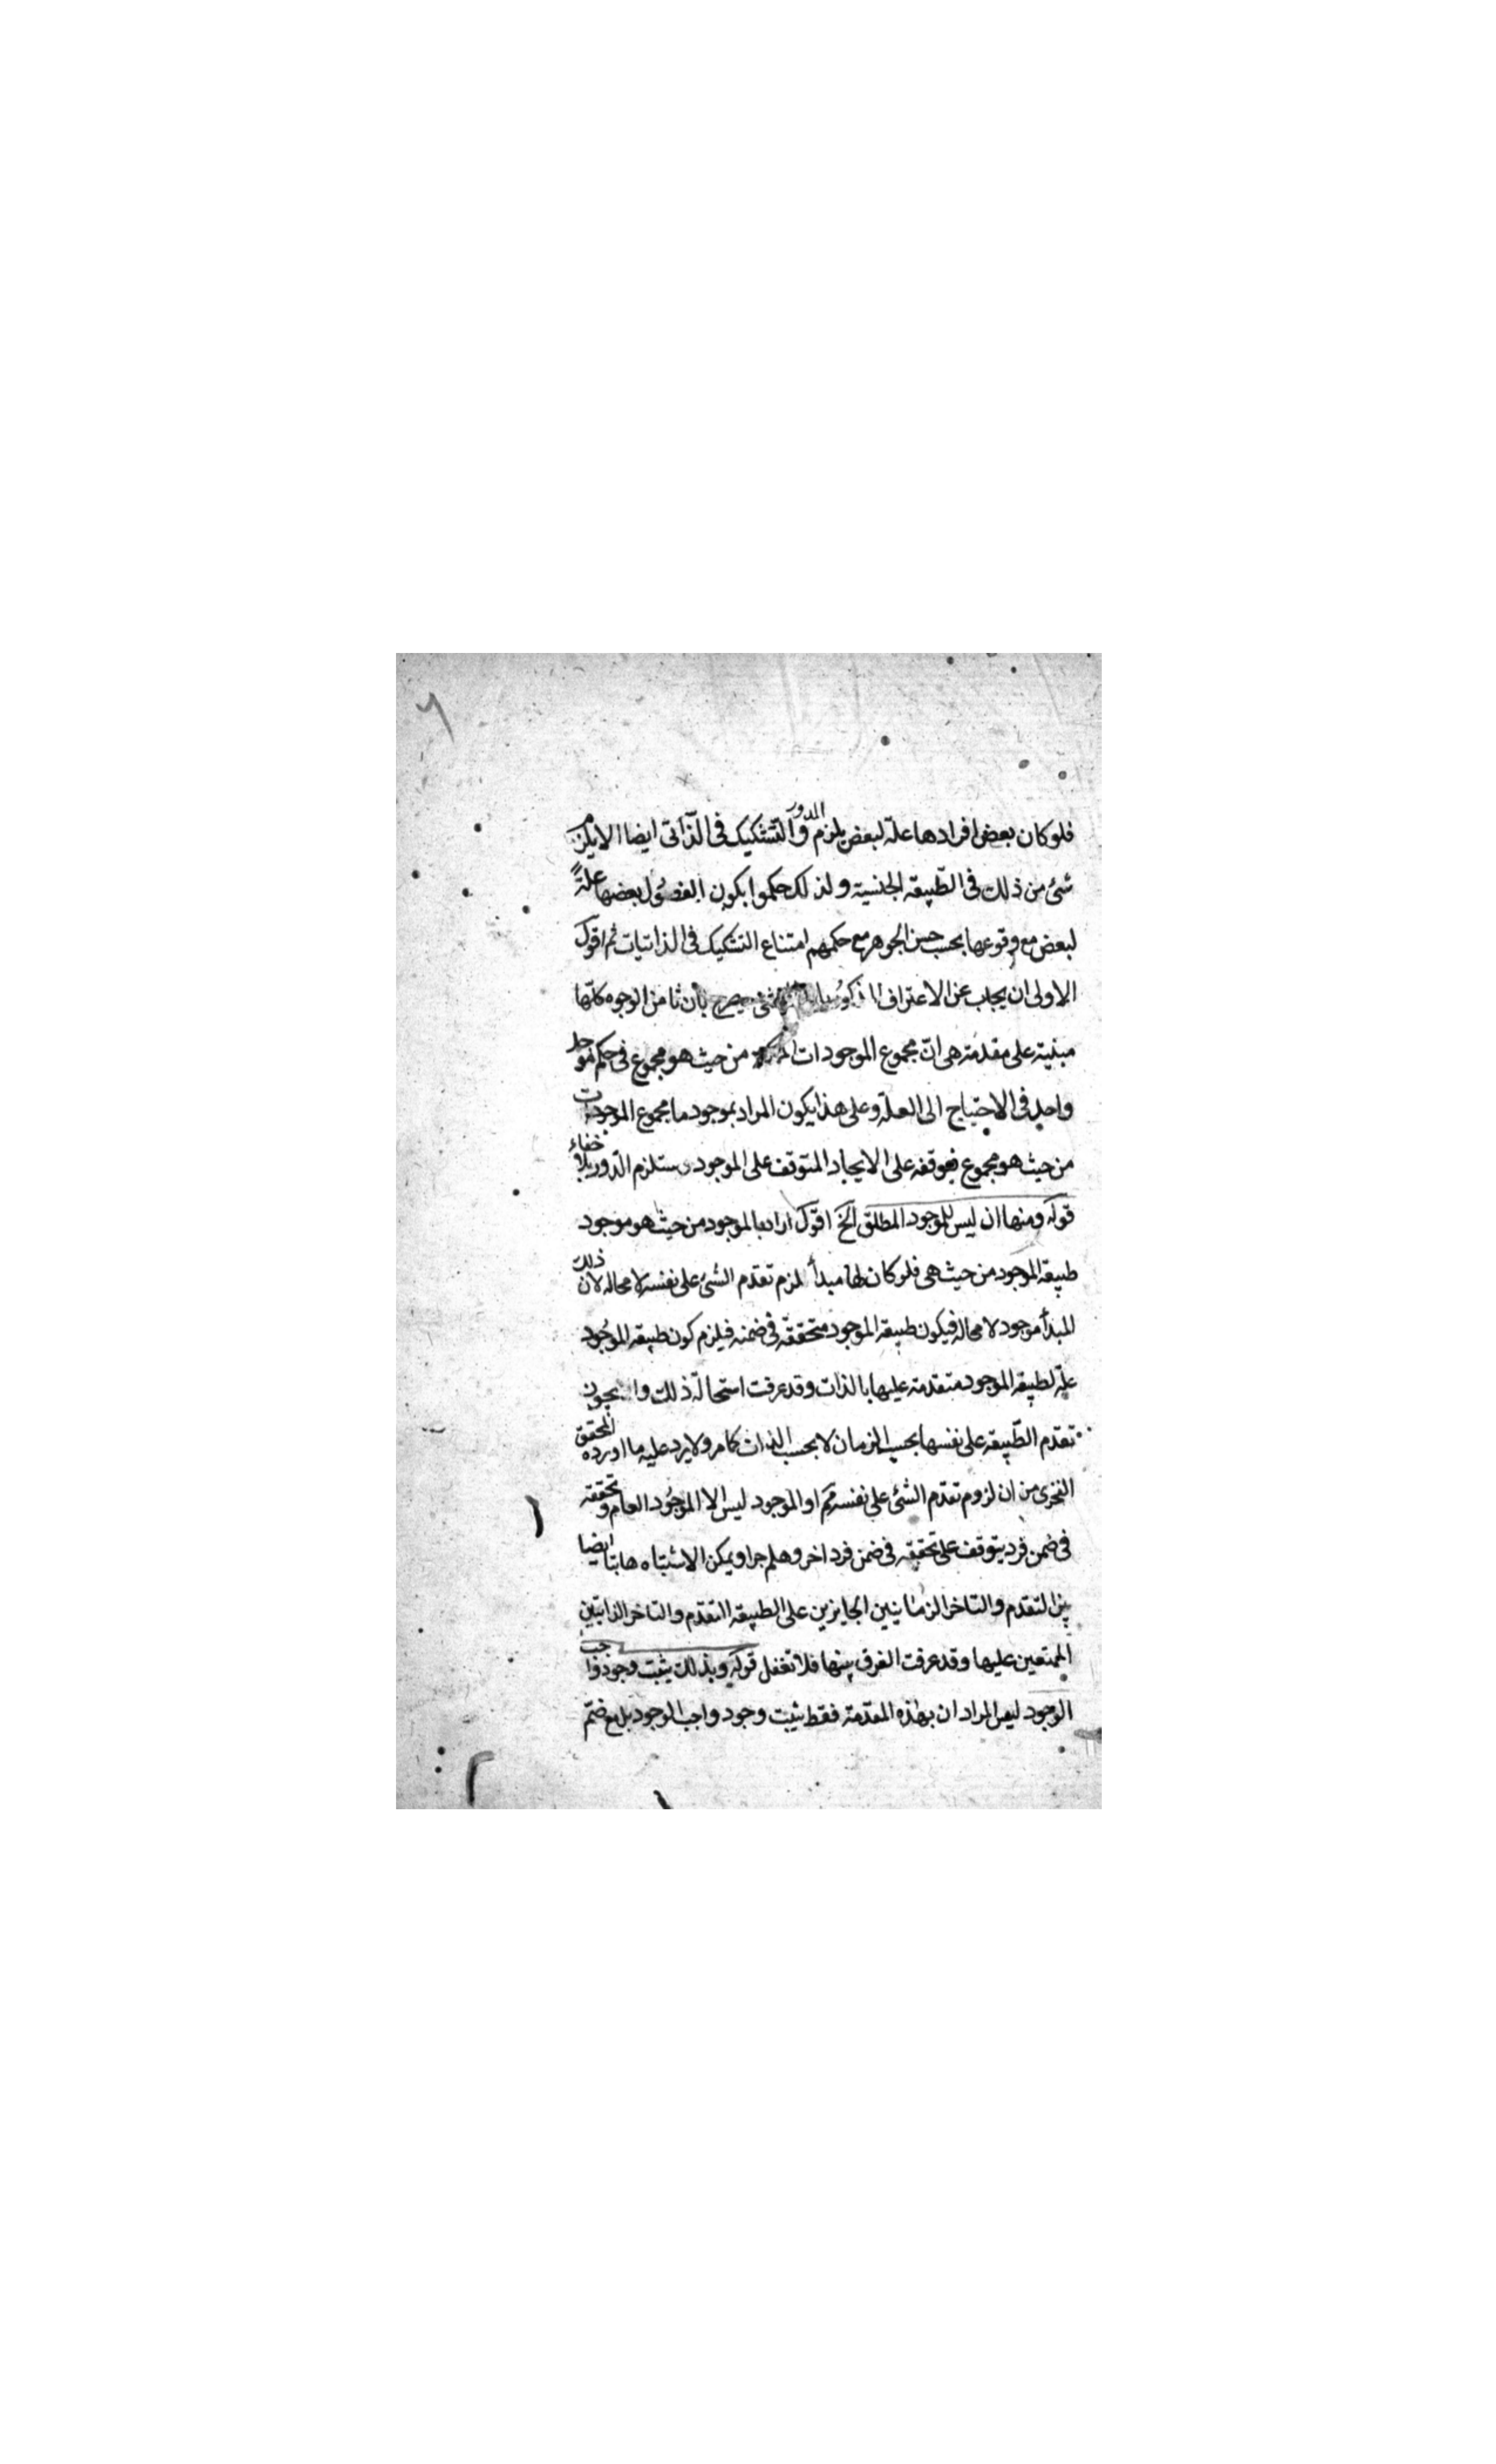 فلو كان بعض افرادها علة لبعض يلزم الدور والتشكيك في الذاتي ايضا الا يلزم
شئ من ذلك في الطبيعة الجنسية ولذلك حكموا بكون الفصول بعضها علة
لبعض مع وقوعها بحسب جنس الجوهر مع حكمهم امتناع التشكيك في الذاتيات ثم اقول
الاولى ان يجاب عن الاعتراف يصرح بان ثامن الوجوه كلها
مبنية على مقدمة هي ان مجموع الموجودات من حيث هو مجموع في حكم موجد
واحد في الاحتياج الى العلة وعلى هذا يكون المراد بموجود ما مجموع الموجودات
من حيث هو مجموع فتوقفه على الايجاد المتوقف على الموجود يستلزم الدور بلا خفاء
قوله ومنها ان ليس للموجود المطلق الخ اقول اراد بالموجود من حيث هو موجود
طبيعة الموجود من حيث هي فلو كان لها مبدأ لزم تقدم الشئ على نفسه لا محالة لان ذلك
المبدأ موجود لا محالة فيكون طبيعة الموجود متحققة في ضمنه فيلزم كون طبيعة الموجود
علة لطبيعة الموجود متقدمة عليها بالذات وقد عرفت استحالة ذلك
تقدم الطبيعة على نفسها بحسب الزمان لا بحسب الذات كما مر ولا يرد عليه ما اورده المحقق
الفخري من ان لزوم تقدم الشئ على نفسه مم او الموجود ليس الا الموجود العام وتحققه
في ضمن فرد يتوقف على تحققه في ضمن فرد اخر وهلم جرا ويمكن الاشتباه ايضا
بين التقدم والتاخر الزمانيين الجايزين على الطبيعة التقدم والتاخر الذاتيين
الممتنعين عليها وقد عرفت الفرق بينها فلا تغفل قوله وبذلك يثبت وجود واجب
الوجود ليس المراد ان بهذه المقدمة فقط يثبت وجود واجب الوجود بل مع ضم